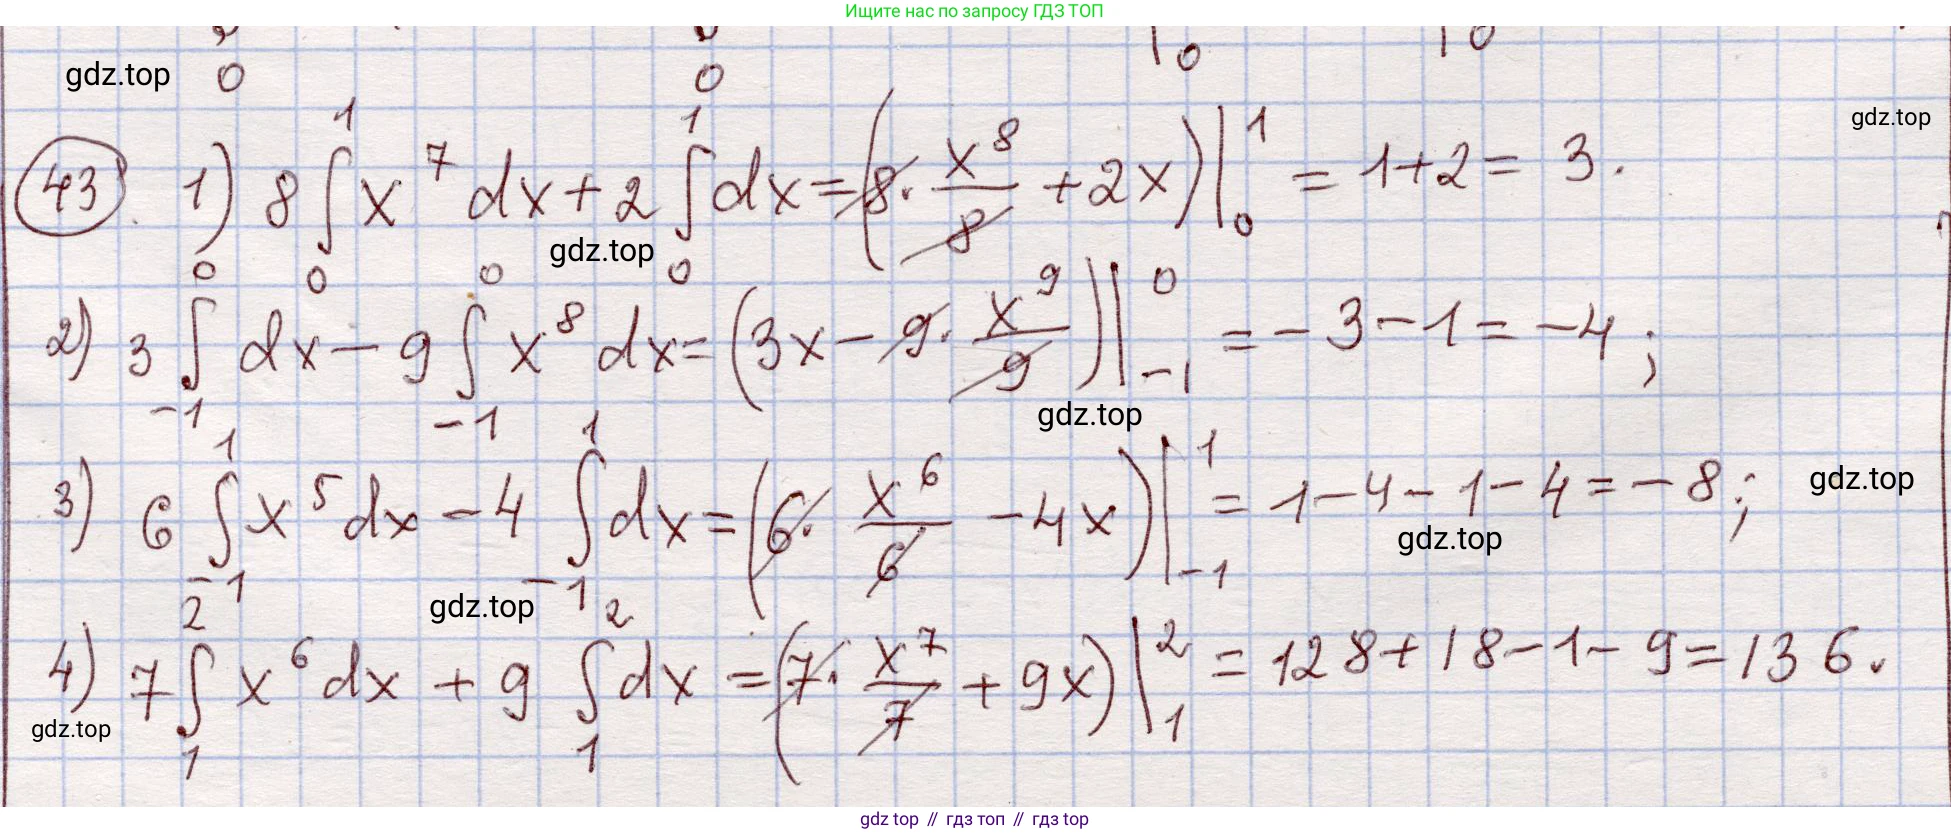 Ищите нас по запросу ГДЗ ТОП
0 0 | 0 | 0
gdz.top
gdz.top
43. 1) 8 ∫₀¹ x⁷ dx + 2 ∫₀¹ dx = (8 · x⁸/8 + 2x)|₀¹ = 1 + 2 = 3.
gdz.top
2) 3 ∫₋₁⁰ dx − 9 ∫₋₁⁰ x⁸ dx = (3x − 9 · x⁹/9)|₋₁⁰ = −3 − 1 = −4;
gdz.top
3) 6 ∫₋₁¹ x⁵ dx − 4 ∫₋₁¹ dx = (6 · x⁶/6 − 4x)|₋₁¹ = 1 − 4 − 1 − 4 = −8;
gdz.top
gdz.top
gdz.top
4) 7 ∫₁² x⁶ dx + 9 ∫₁² dx = (7 · x⁷/7 + 9x)|₁² = 128 + 18 − 1 − 9 = 136.
gdz.top
gdz top // гдз топ // гдз top